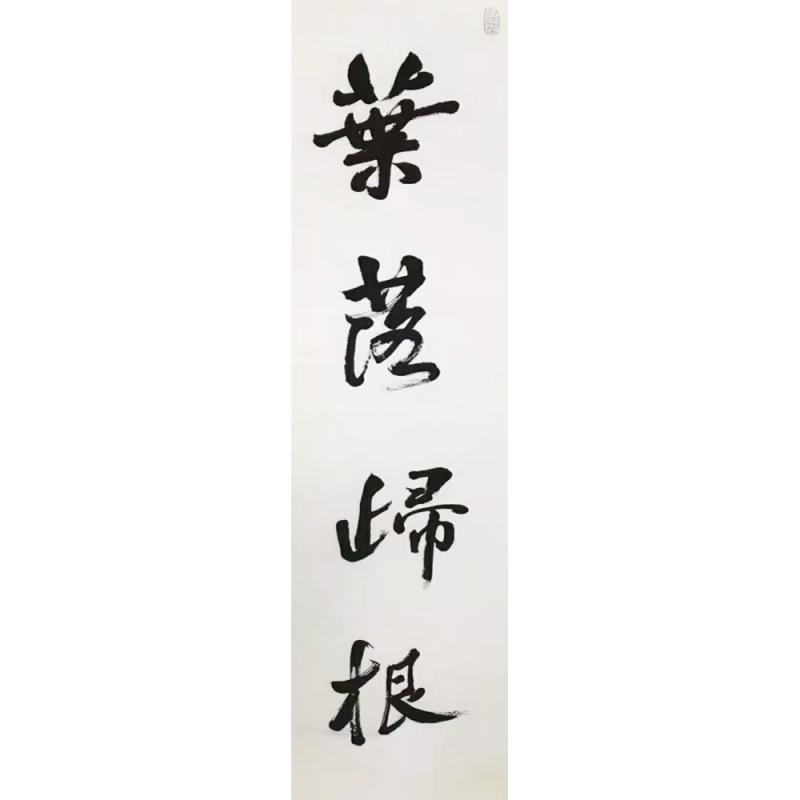 葉落歸根